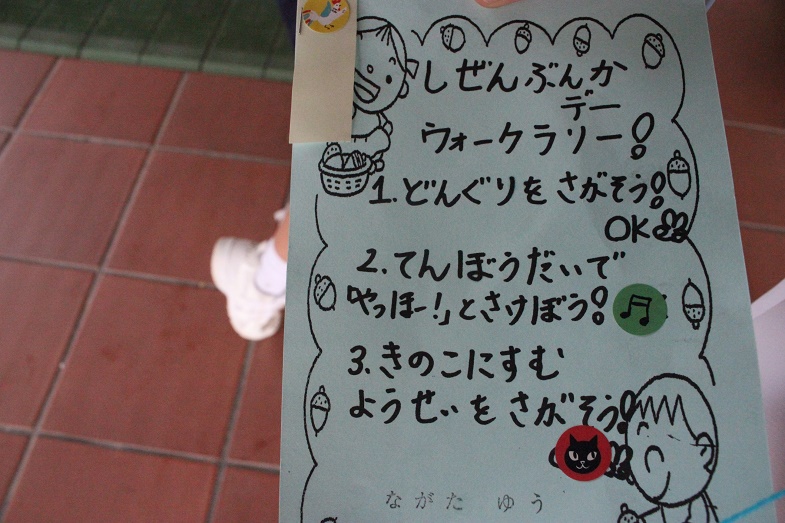 しぜんぶんか
デー
ウォークラリー!
1.どんぐりを さがそう!
OK
2.てんぼうだいで
「やっほー!」とさけぼう!
3.きのこにすむ
ようせいを さがそう!
ながた ゆう